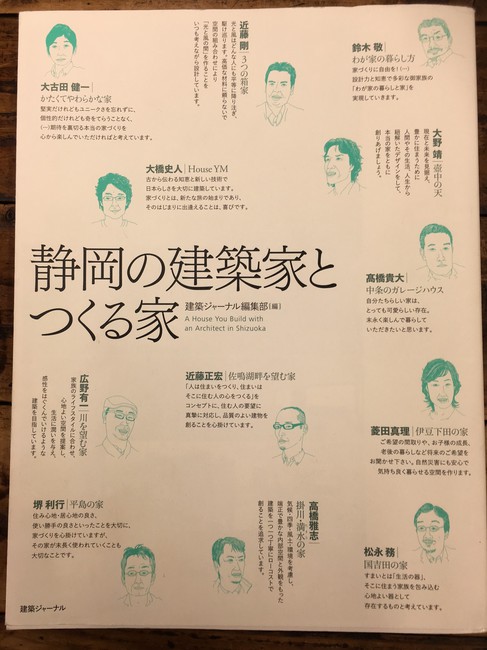 大古田 健一
かたくてやわらかな家
堅実だけれどもユニークさを忘れずに、
個性的だけれども奇をてらうことなく、
(一)期待を裏切る本当の家づくりを
心から楽しんでいただければと考えています。
近藤 剛│3つの箱家
光と風はどんな人にも平等に降り注ぎ、
駆け巡ります。高価な材料に頼らないで
空間の組み合わせにより
「光と風の間」を作ることを
いつも考えながら設計しています。
鈴木 敬│
わが家の暮らし方
家づくりに自由を!(一)
設計力と知恵で多彩な御家族の
「わが家の暮らしと家」を
実現していきます。
大橋史人│House YM
古から伝わる知恵と新しい技術で
日本らしさを大切に建築しています。
家づくりとは、新たな旅の始まりであり、
そのはじまりに出逢えることは、喜びです。
大野 靖│壷中の天
現在と未来を見据え、
豊かに住まうために
人間やその生活、人生から
紐解いたデザインをして、
本当の家をともに
創りあげましょう。
静岡の建築家と
つくる家
建築ジャーナル編集部[編]
A House You Build with
an Architect in Shizuoka
髙橋貴大│
中条のガレージハウス
自分たちらしい家は、
とっても可愛らしい存在。
末永く楽しんで暮らして
いただきたいと思います。
広野有一│川を望む家
家族のライフスタイルに合わせ、
心地よい空間を提案し、
生活に潤いを与え、
感性をはぐくんでいけるような
建築を目指しています。
近藤正宏│佐鳴湖畔を望む家
「人は住まいをつくり、住まいは
そこに住む人の心をつくる」を
コンセプトに、住む人の要望に
真摯に対応し、品質のよい建物を
創ることを心掛けています。
菱田真理│伊豆下田の家
ご希望の間取りや、お子様の成長、
老後の暮らしなど将来のご希望を
お聞かせ下さい。自然災害にも安心で
気持ち良く暮らせる空間を作ります。
堺 利行│平島の家
住み心地・居心地の良さ、
使い勝手の良さといったことを大切に、
家づくりを心掛けていますが、
その家が末長く使われていくことも
大切なことです。
高橋雅志│
掛川・満水の家
気候・四季・風土・環境を考慮し、
端正で豊かな内部空間と外観をもった
建築を一つ一つ丁寧にローコストで
創ることを追求しています。
松永 務│
国吉田の家
すまいとは「生活の器」。
そこに住まう家族を包み込む
心地よい器として
存在するものと考えています。
建築ジャーナル